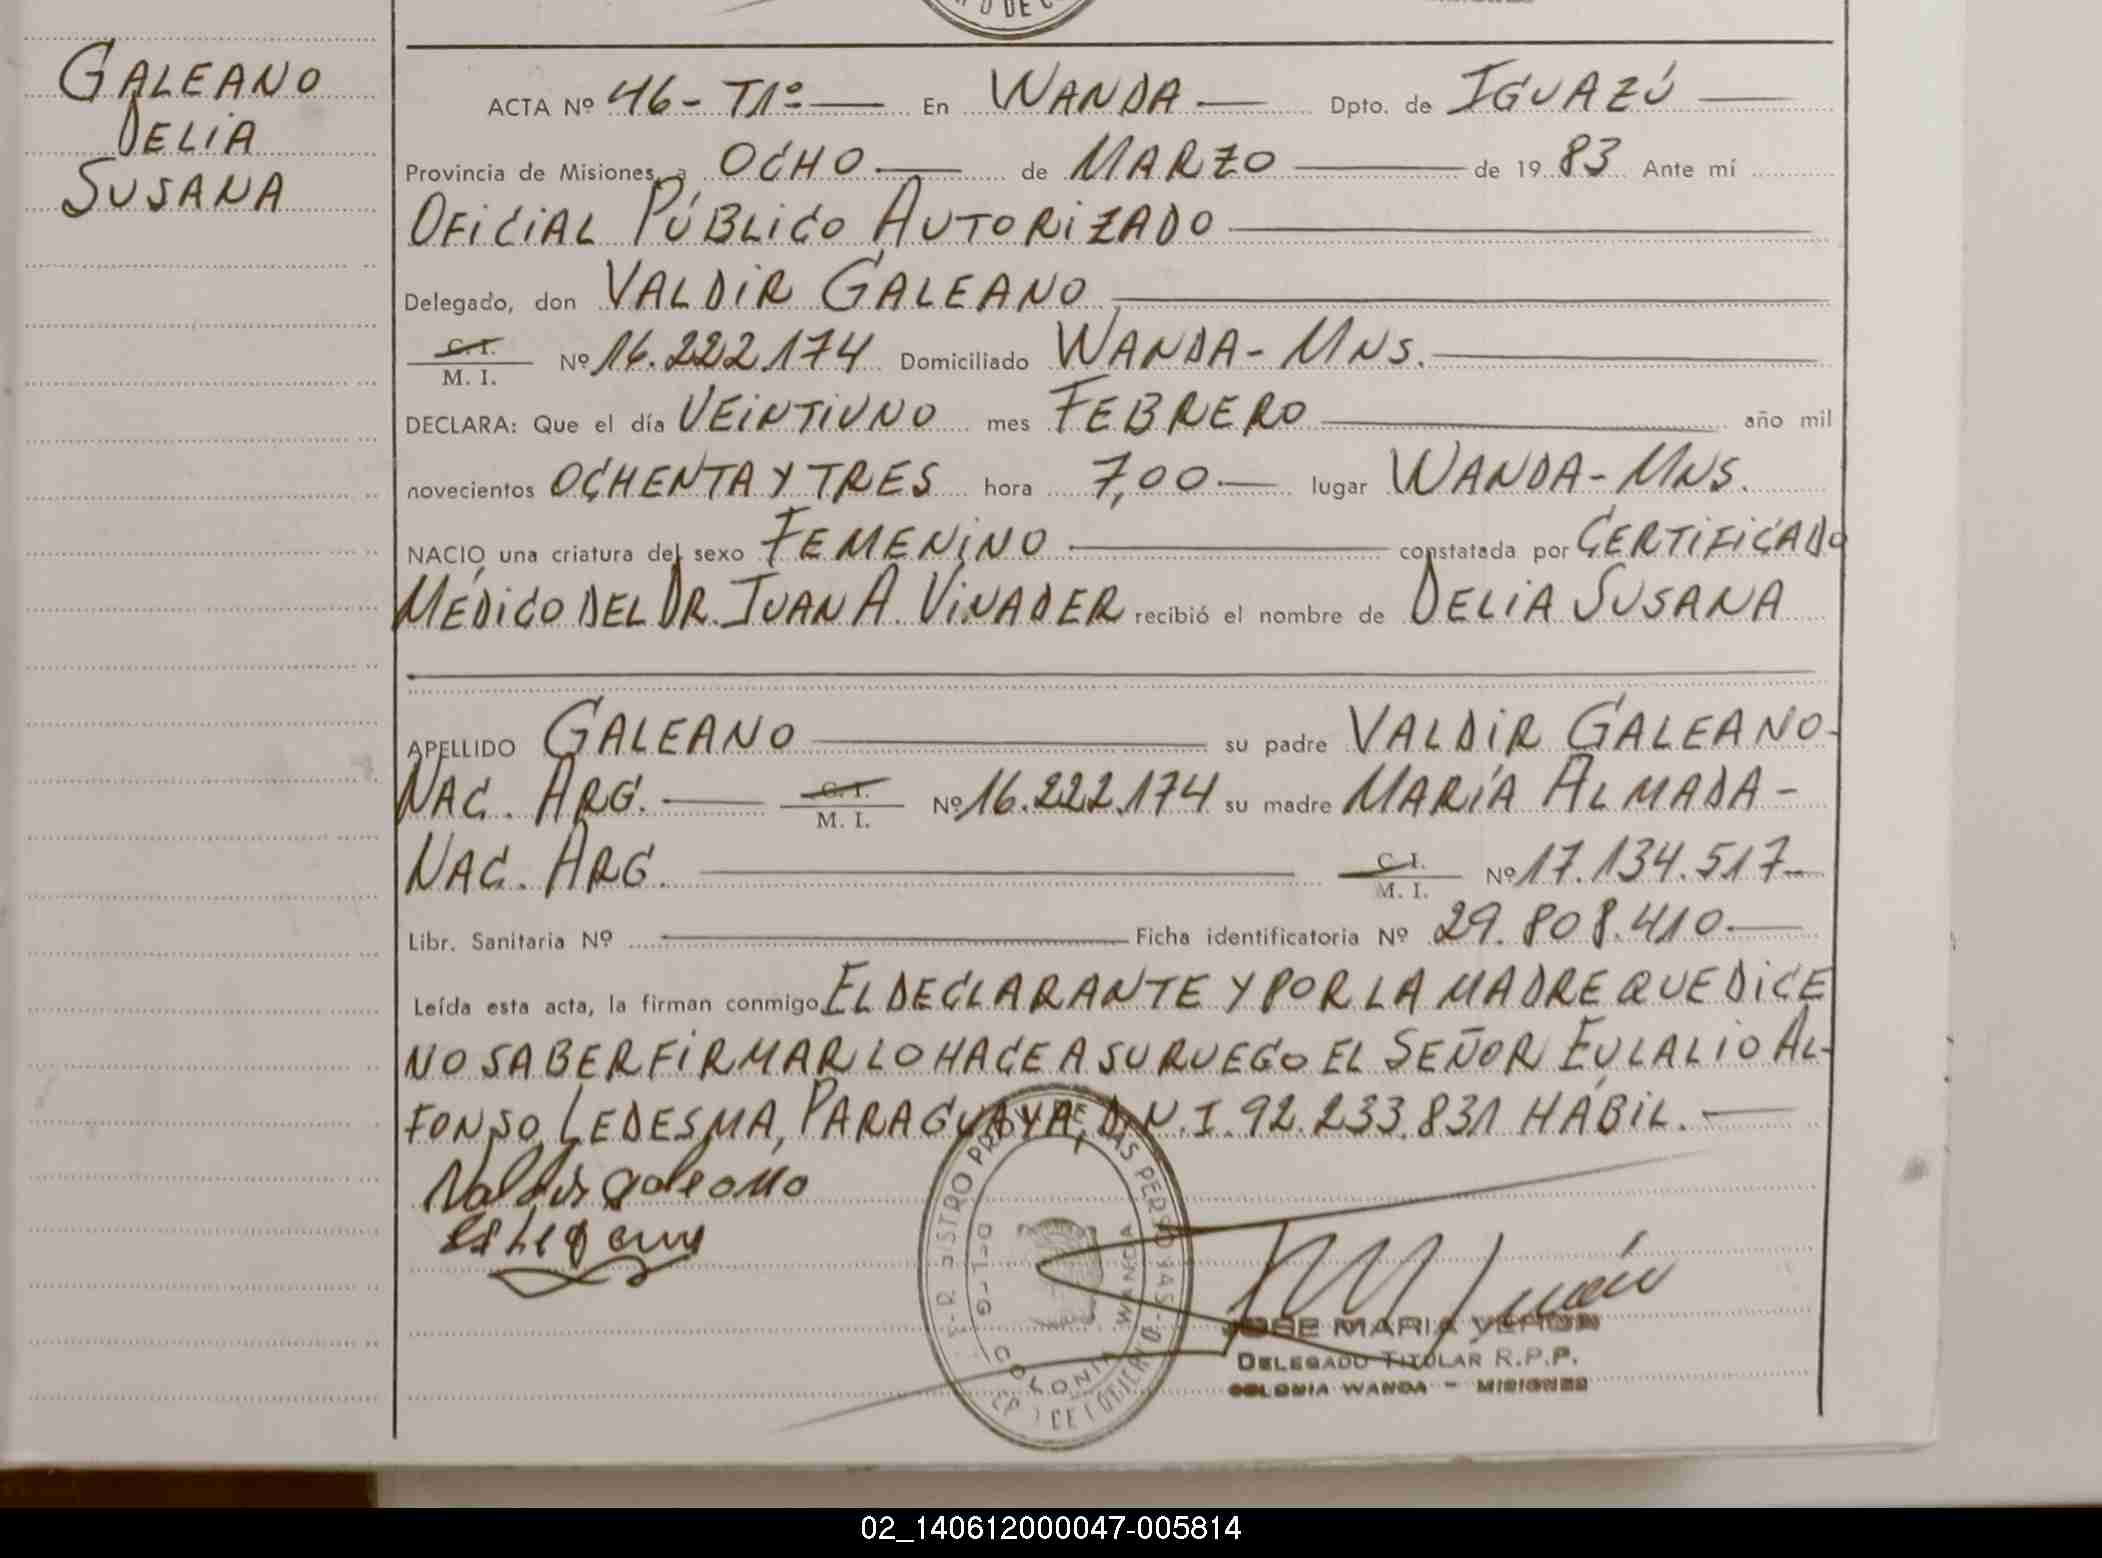 GALEANO
DELIA
SUSANA
ACTA Nº 46- T1º En WANDA Dpto. de IGUAZÚ
Provincia de Misiones, a OCHO de MARZO de 1983 Ante mí
OFICIAL PÚBLICO AUTORIZADO
Delegado, don VALDIR GALEANO
C. I.
M. I. Nº 16.222.174 Domiciliado WANDA-MNS.
DECLARA: Que el día VEINTIUNO mes FEBRERO año mil
novecientos OCHENTA Y TRES hora 7,00 lugar WANDA-MNS.
NACIO una criatura del sexo FEMENINO constatada por CERTIFICADO
MÉDICO DEL DR. JUAN A. VINADER recibió el nombre de DELIA SUSANA
APELLIDO GALEANO su padre VALDIR GALEANO-
NAC. ARG. C. I. M. I. Nº 16.222.174 su madre MARÍA ALMADA-
NAC. ARG. C. I. M. I. Nº 17.134.517
Libr. Sanitaria Nº Ficha identificatoria Nº 29.808.410
Leída esta acta, la firman conmigo EL DECLARANTE Y POR LA MADRE QUE DICE
NO SABER FIRMAR LO HACE A SU RUEGO EL SEÑOR EULALIO AL-
FONSO LEDESMA, PARAGUAYA, D.N.I. 92.233.831 HÁBIL.
Valdir galeano
COLONIA WANDA
JOSE MARIA VERON
DELEGADO TITULAR R.P.P.
COLONIA WANDA - MISIONES
02_140612000047-005814